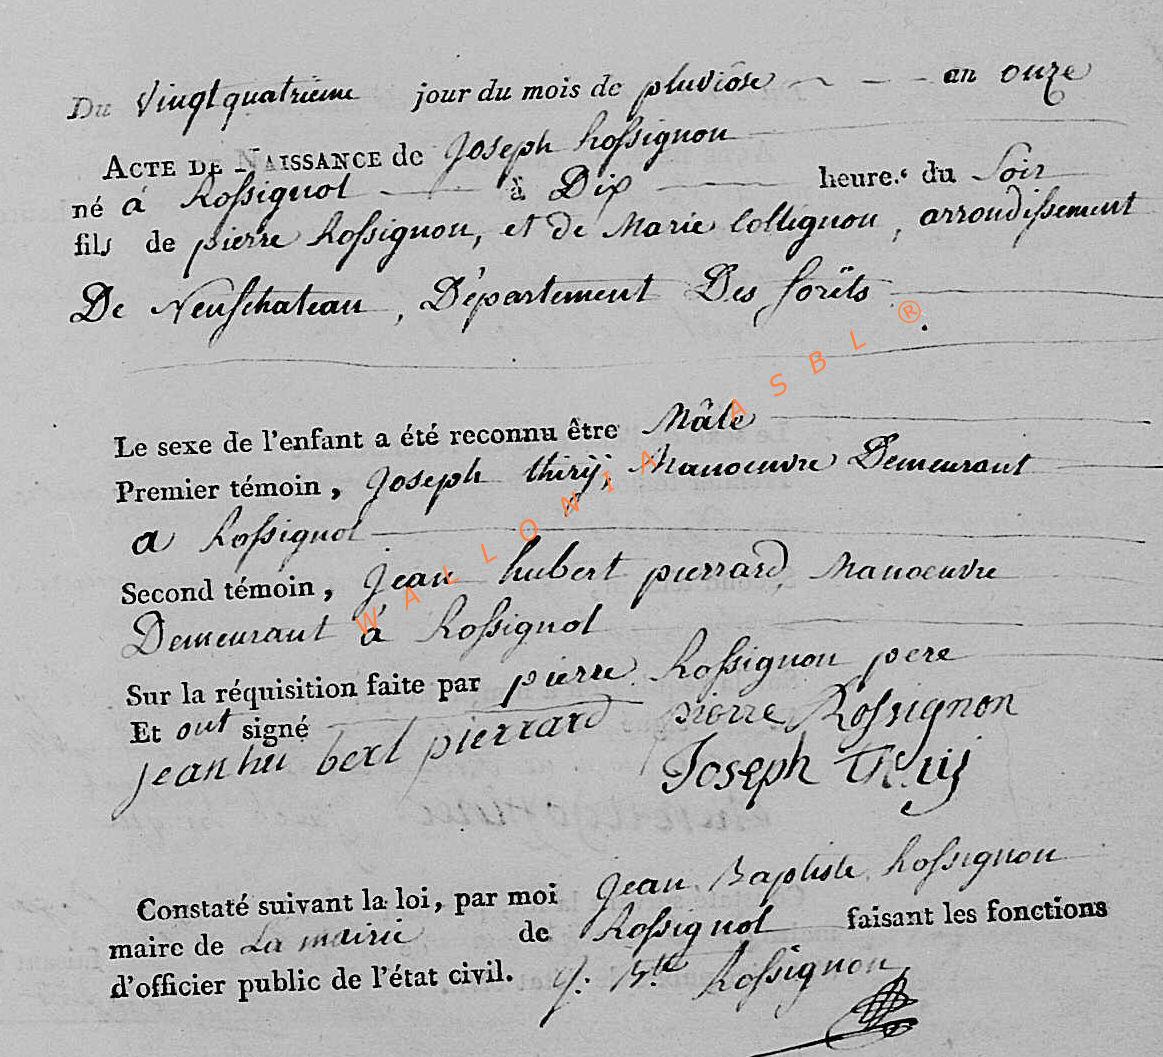 Du Vingt quatrieme jour du mois de pluviôse an onze
ACTE DE NAISSANCE de Joseph Rossignon
né à Rossignol à Dix heures du Soir
fils de pierre Rossignon, et de Marie Collignon, arrondissement
De Neufchateau, Département Des forêts
Le sexe de l'enfant a été reconnu être Mâle
Premier témoin, Joseph thirij, Manoeuvre Demeurant
a Rossignol
Second témoin, jean hubert pierrard, Manoeuvre
Demeurant à Rossignol
Sur la réquisition faite par pierre Rossignon pere
Et ont signé
jean hubert pierrard pierre Rossignon
Joseph thirij
Constaté suivant la loi, par moi Jean Baptiste Rossignon
maire de La mairie de Rossignol faisant les fonctions
d'officier public de l'état civil. J. Bte Rossignon
WALLONIA ASBL ®